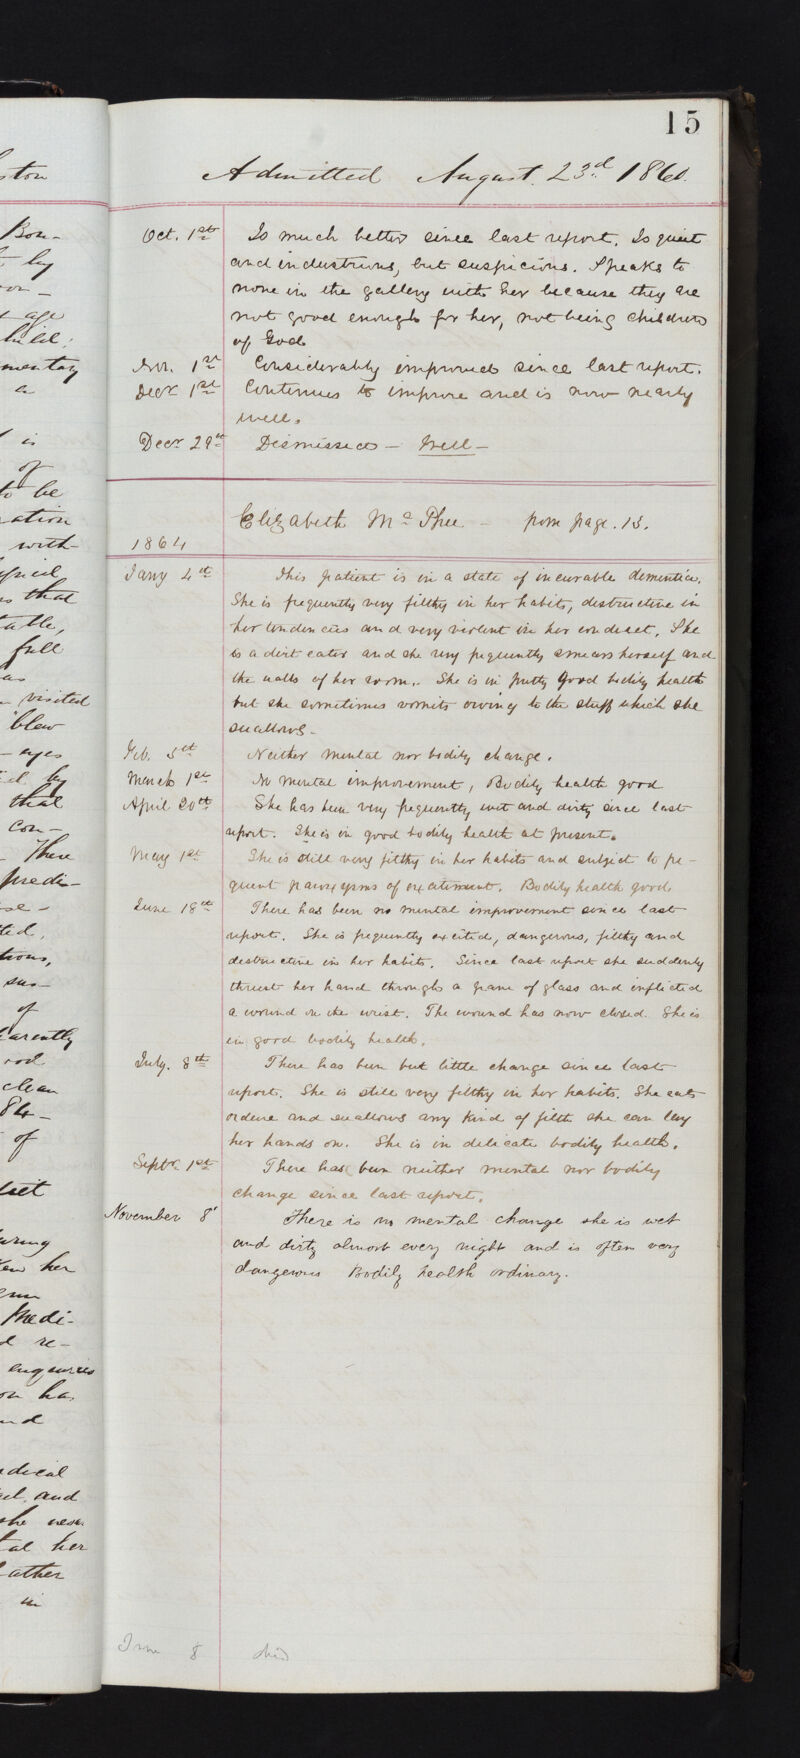 15
Admitted August 23rd 1860.
Oct. 1st Is much better since last report. Is quiet
and industrious, but suspicious. Speaks to
none in the gallery with her because they are
not good enough for her, not being children
of God.
Nov. 1st Considerably improved since last report.
Decr 1st Continues to improve and is now nearly
well.
Decr 29th Dismissed — Well —
Elizabeth McPhee — from page. 13.
1864
Jany 4th This patient is in a state of incurable dementia.
She is frequently very filthy in her habits, destructive in
her tendencies and very violent in her conduct. She
is a dirt eater and she very frequently smears herself and
the walls of her room. She is in pretty good bodily health
but she sometimes vomits owing to the stuff which she
swallows —
Feb. 5th Neither mental nor bodily change.
March 1st No mental improvement, Bodily health good
April 20th She has been very frequently wet and dirty since last
report. She is in good bodily health at present.
May 1st She is still very filthy in her habits and subject to fre-
quent paroxysms of excitement. Bodily health good
June 18th There has been no mental improvement since last
report. She is frequently excited, dangerous, filthy and
destructive in her habits. Since last report she suddenly
thrust her hand through a pane of glass and inflicted
a wound on the wrist. The wound has now closed. She is
in good bodily health.
July. 8th There has been but little change since last
report. She is still very filthy in her habits. She eats
ordure and swallows any kind of filth she can lay
her hands on. She is in delicate bodily health.
Septr 1st There has been neither mental nor bodily
change since last report.
November 8' There is no mental change she is wet
and dirty almost every night and is often very
dangerous Bodily health ordinary.
June 8 died
ston
Bon-
by
age
mentary
a
is
of
to be
ration
with-
that
full
visited
blew
eyes
by
that
con-
There
predis-
of
clean
84-
of
her
Medi-
re-
enquiries
and
she
her
father
in